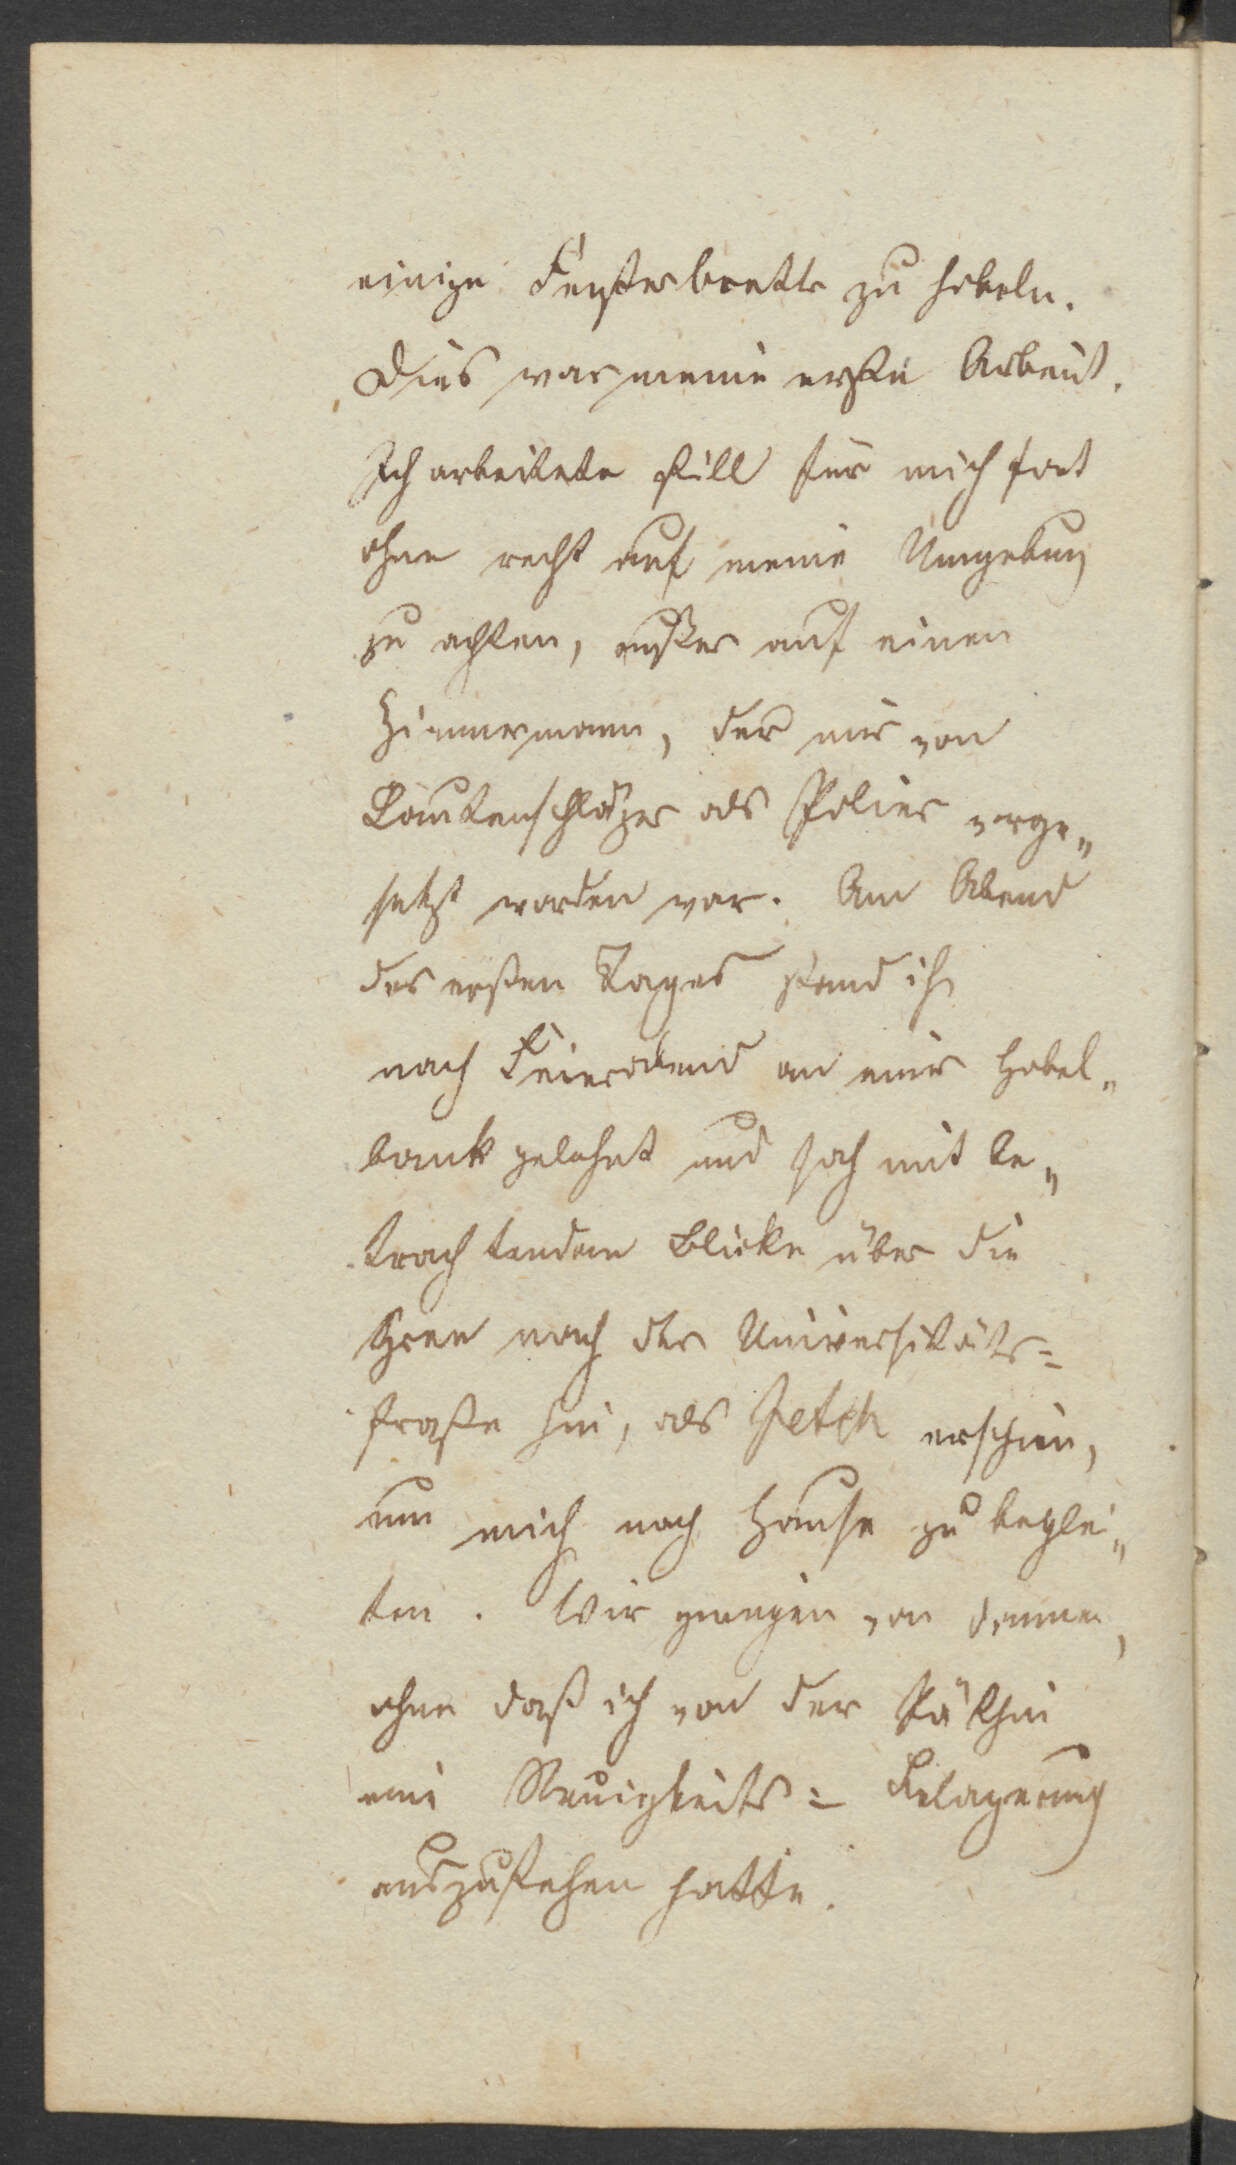 einige Fensterbrette zu hobeln.
Dies war meine erste Arbeit.
Ich arbeitete still für mich fort
ohne recht auf meine Umgebung
zu achten, außer auf einen
Zimmermann, der mir von
Lautenschläger als Polier vorge„
setzt worden war. Am Abend
des ersten Tages stand ich
nach Feierabend an einer Hobel„
bank gelehnt und sah mit be„
trachtendem Blicke über die
Spree nach der Universitäts=
straße hin, als Jetch erschien,
um mich nach Hause zu beglei„
ten. Wir gingen von dannen,
ohne daß ich von der
eine Neuigkeits= Belagerung
auszustehen hatte.